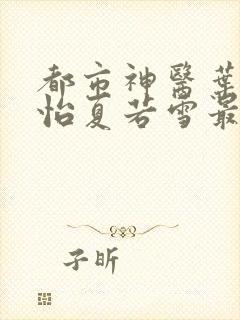 都市神醫葉
怡夏若雪最
子昕